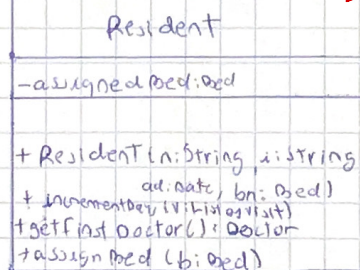 Resident
-assignedBed:Bed
+ Resident(n:String, i:String
ad:Date, bn:Bed)
+ incrementDay(v:Listofvisit)
+getfirstDoctor():Doctor
+assignBed(b:Bed)